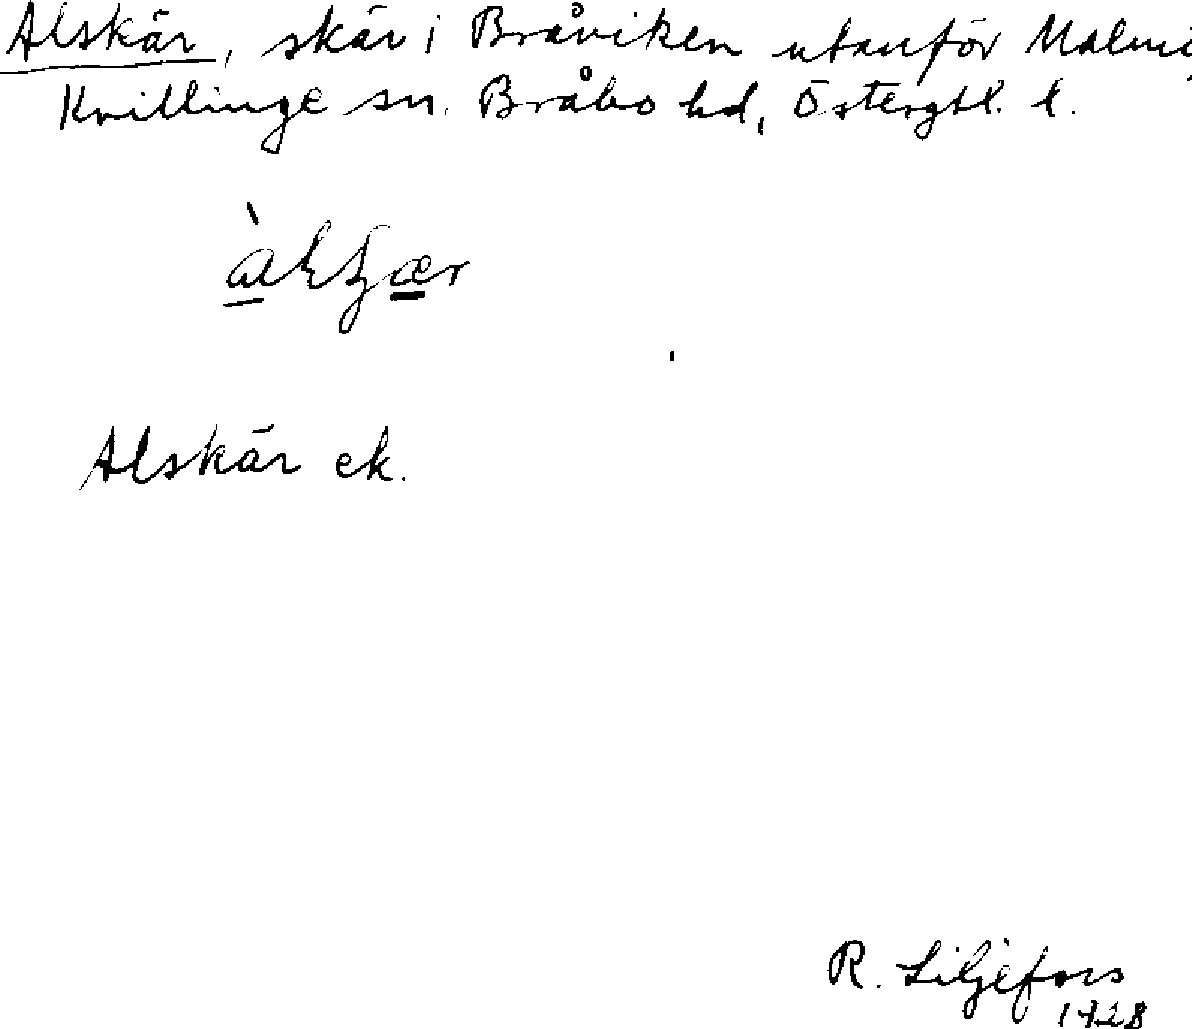 Alskär, skär i Bråviken utanför Malmö,
Kvillinge sn. Bråbo hd, Östergtl. l.
Alskär ek.
R. Liljefors
1928